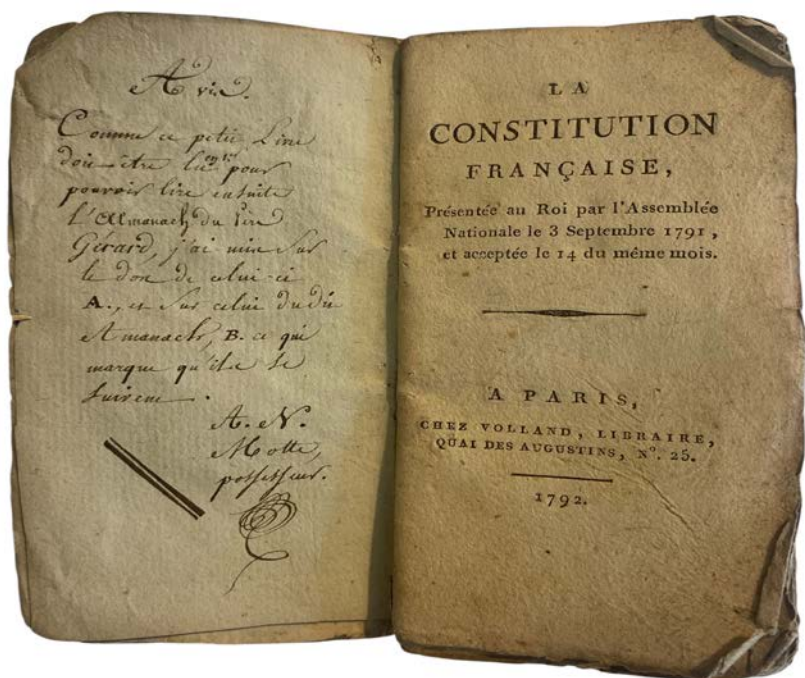 Avis.
Comme ce petit Livre
doit être lu en 1er pour
pouvoir lire ensuite
L'Almanach du Père
Gérard, j'ai mis sur
le dos de celui-ci
A., et sur celui du dit
Almanach, B. ce qui
marque qu'ils se
suivent.
A. N.
Motte,
possesseur.
LA
CONSTITUTION
FRANÇAISE,
Présentée au Roi par l'Assemblée
Nationale le 3 Septembre 1791,
et acceptée le 14 du même mois.
A PARIS,
CHEZ VOLLAND, LIBRAIRE,
QUAI DES AUGUSTINS, N°. 25.
1792.